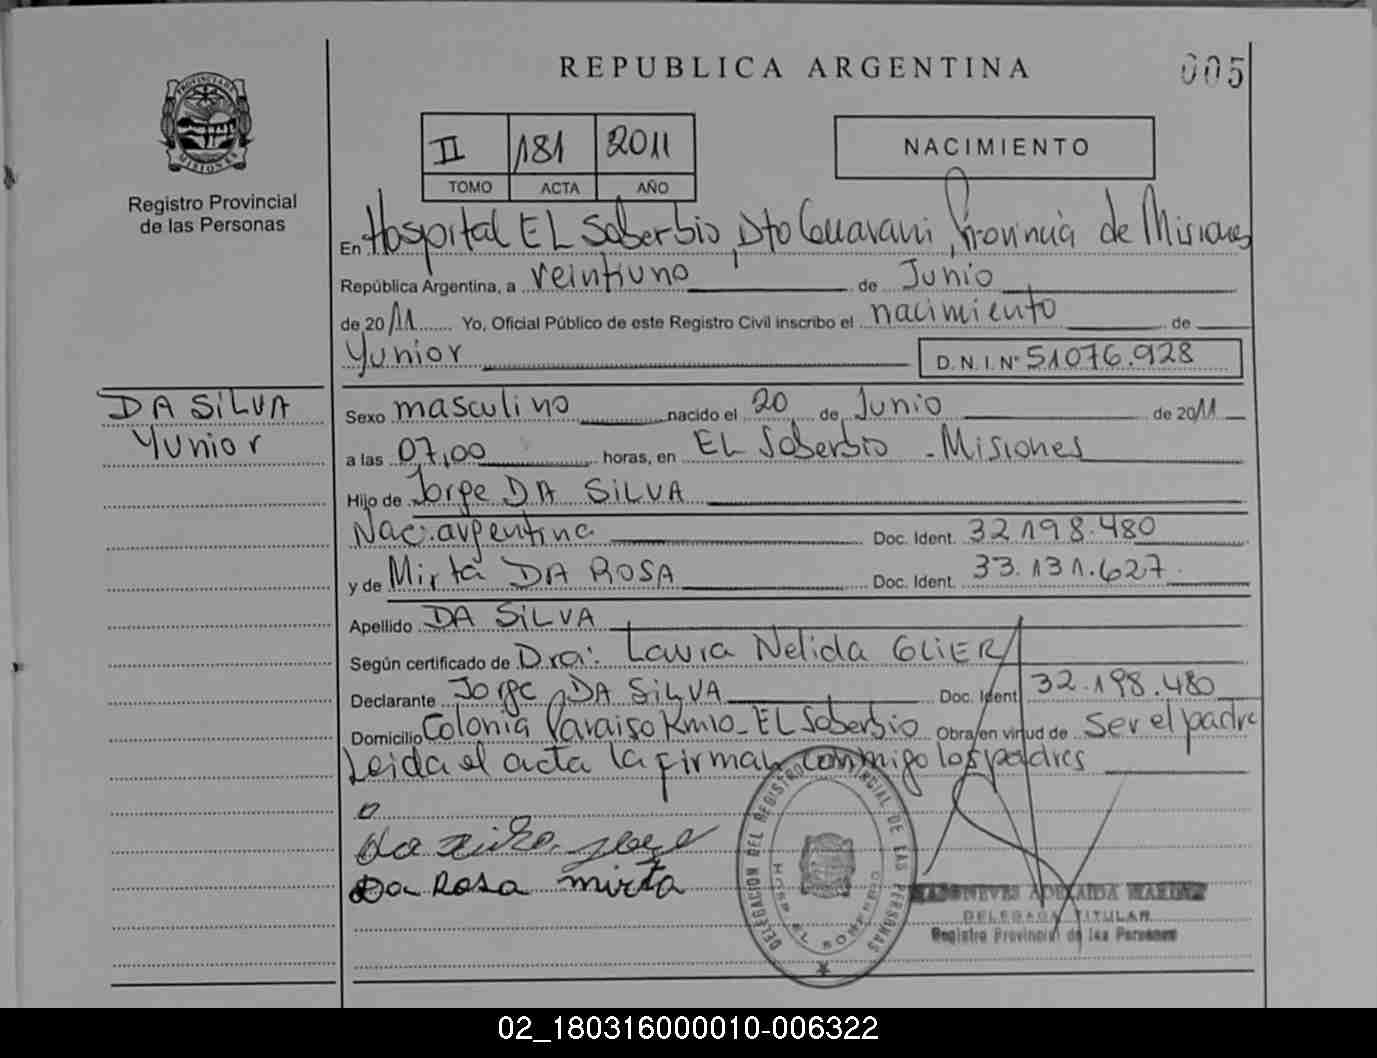 REPUBLICA ARGENTINA
005
PROVINCIA DE MISIONES
Registro Provincial
de las Personas
II 181 2011
TOMO ACTA AÑO
NACIMIENTO
En Hospital EL Soberbio, Dto Guarani, Provincia de Misiones
República Argentina, a veintiuno de Junio
de 2011 Yo, Oficial Público de este Registro Civil inscribo el nacimiento de
Yunior D.N.I.Nº 51076.928
DA SILVA
Yunior
Sexo masculino nacido el 20 de Junio de 2011
a las 07,00 horas, en EL Soberbio - Misiones
Hijo de Jorge DA SILVA
Nac: argentina Doc. Ident. 32.198.480
y de Mirta DA ROSA Doc. Ident. 33.131.627
Apellido DA SILVA
Según certificado de Dra: Laura Nelida GLIER
Declarante Jorge DA SILVA Doc. Ident 32.198.480
Domicilio Colonia Paraiso Km10 - EL Soberbio Obra en virtud de Ser el padre
Leida el acta la firman conmigo los padres
Da Rosa mirta
DELEGACION DEL REGISTRO PROVINCIAL DE LAS PERSONAS
HOSP. EL SOBERBIO
DELEGADA TITULAR
Registro Provincial de las Personas
02_180316000010-006322